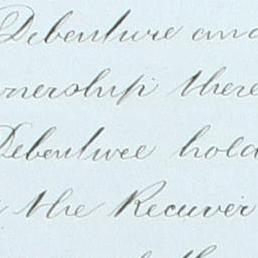 Debenture and
nership there
Debenture hold
the Receiver